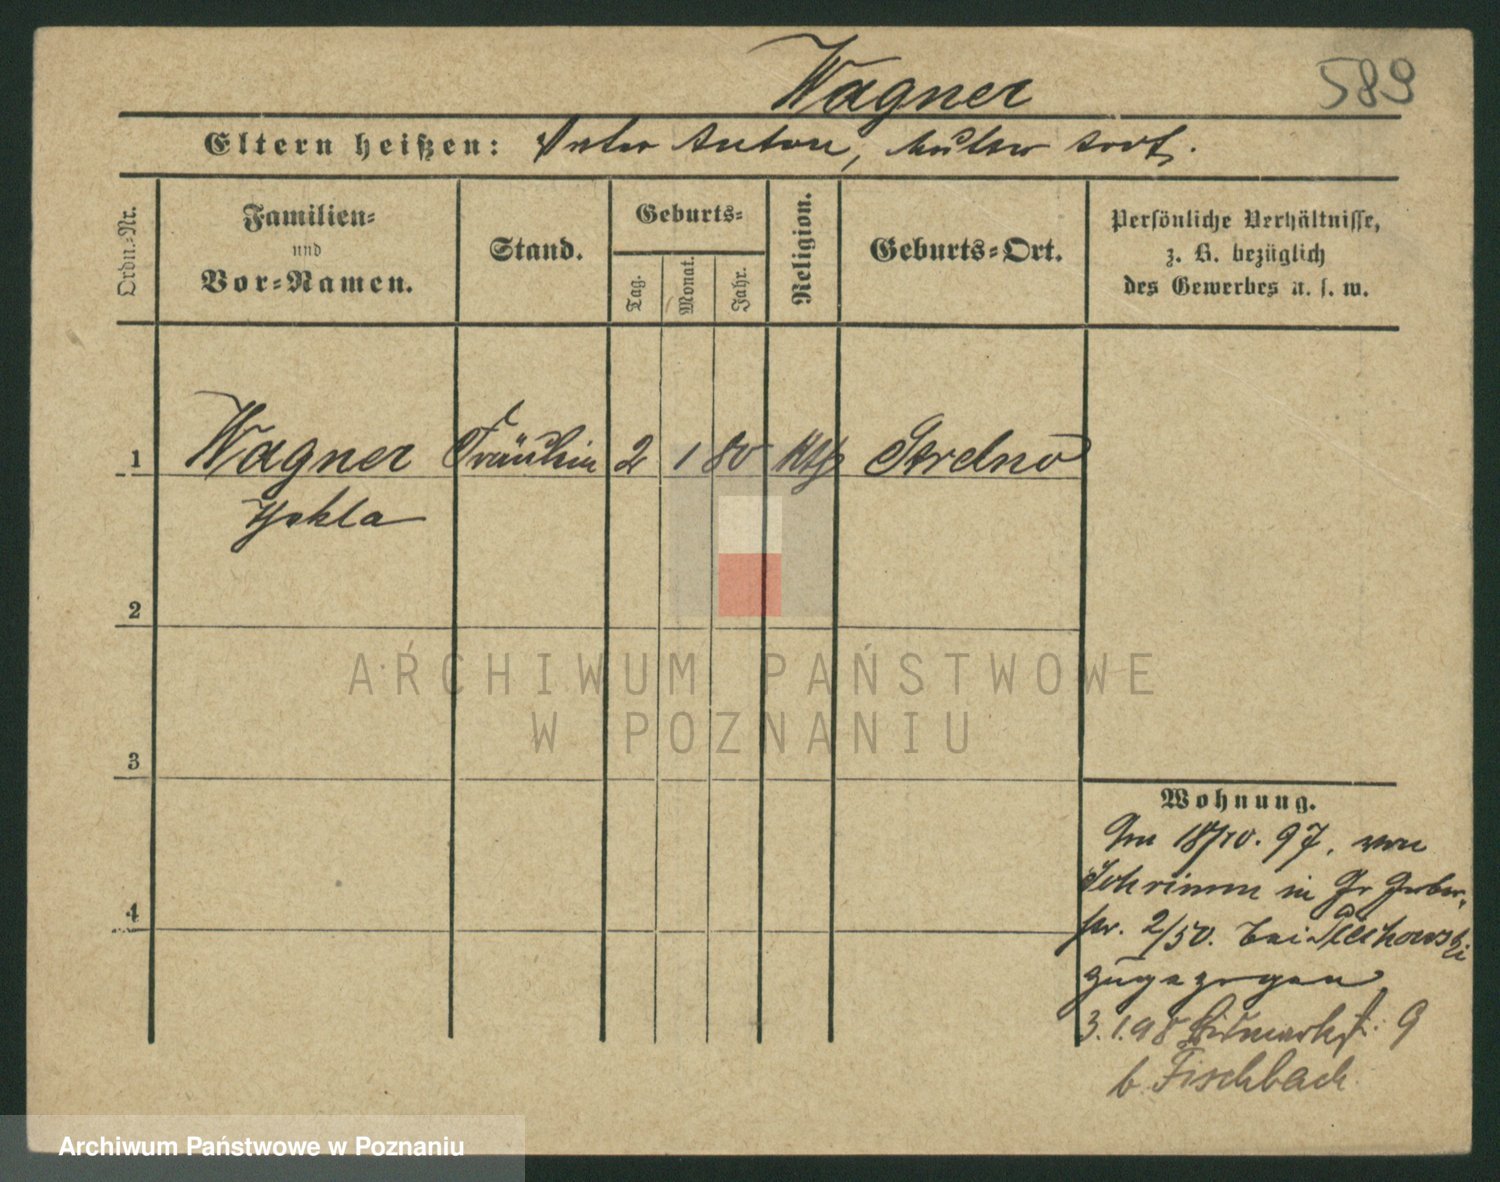 Wagner
589
Eltern heißen: Vater Anton, Mutter todt.
Ordn.-Nr.
Familien-
und
Vor-Namen.
Stand.
Geburts-
Tag.
Monat.
Jahr.
Religion.
Geburts-Ort.
Persönliche Verhältnisse,
z. B. bezüglich
des Gewerbes u. s. w.
1 Wagner Fräulein 2 1 80 Kth Strelno
Thekla
2
3
4
Wohnung.
Am 18/10. 97. von
Schrimm in Gr Gerber,
str. 2/50. bei
zugezogen
3.1.98 Bismarckst. 9
b. Fischbach
ARCHIWUM PAŃSTWOWE
W POZNANIU
Archiwum Państwowe w Poznaniu